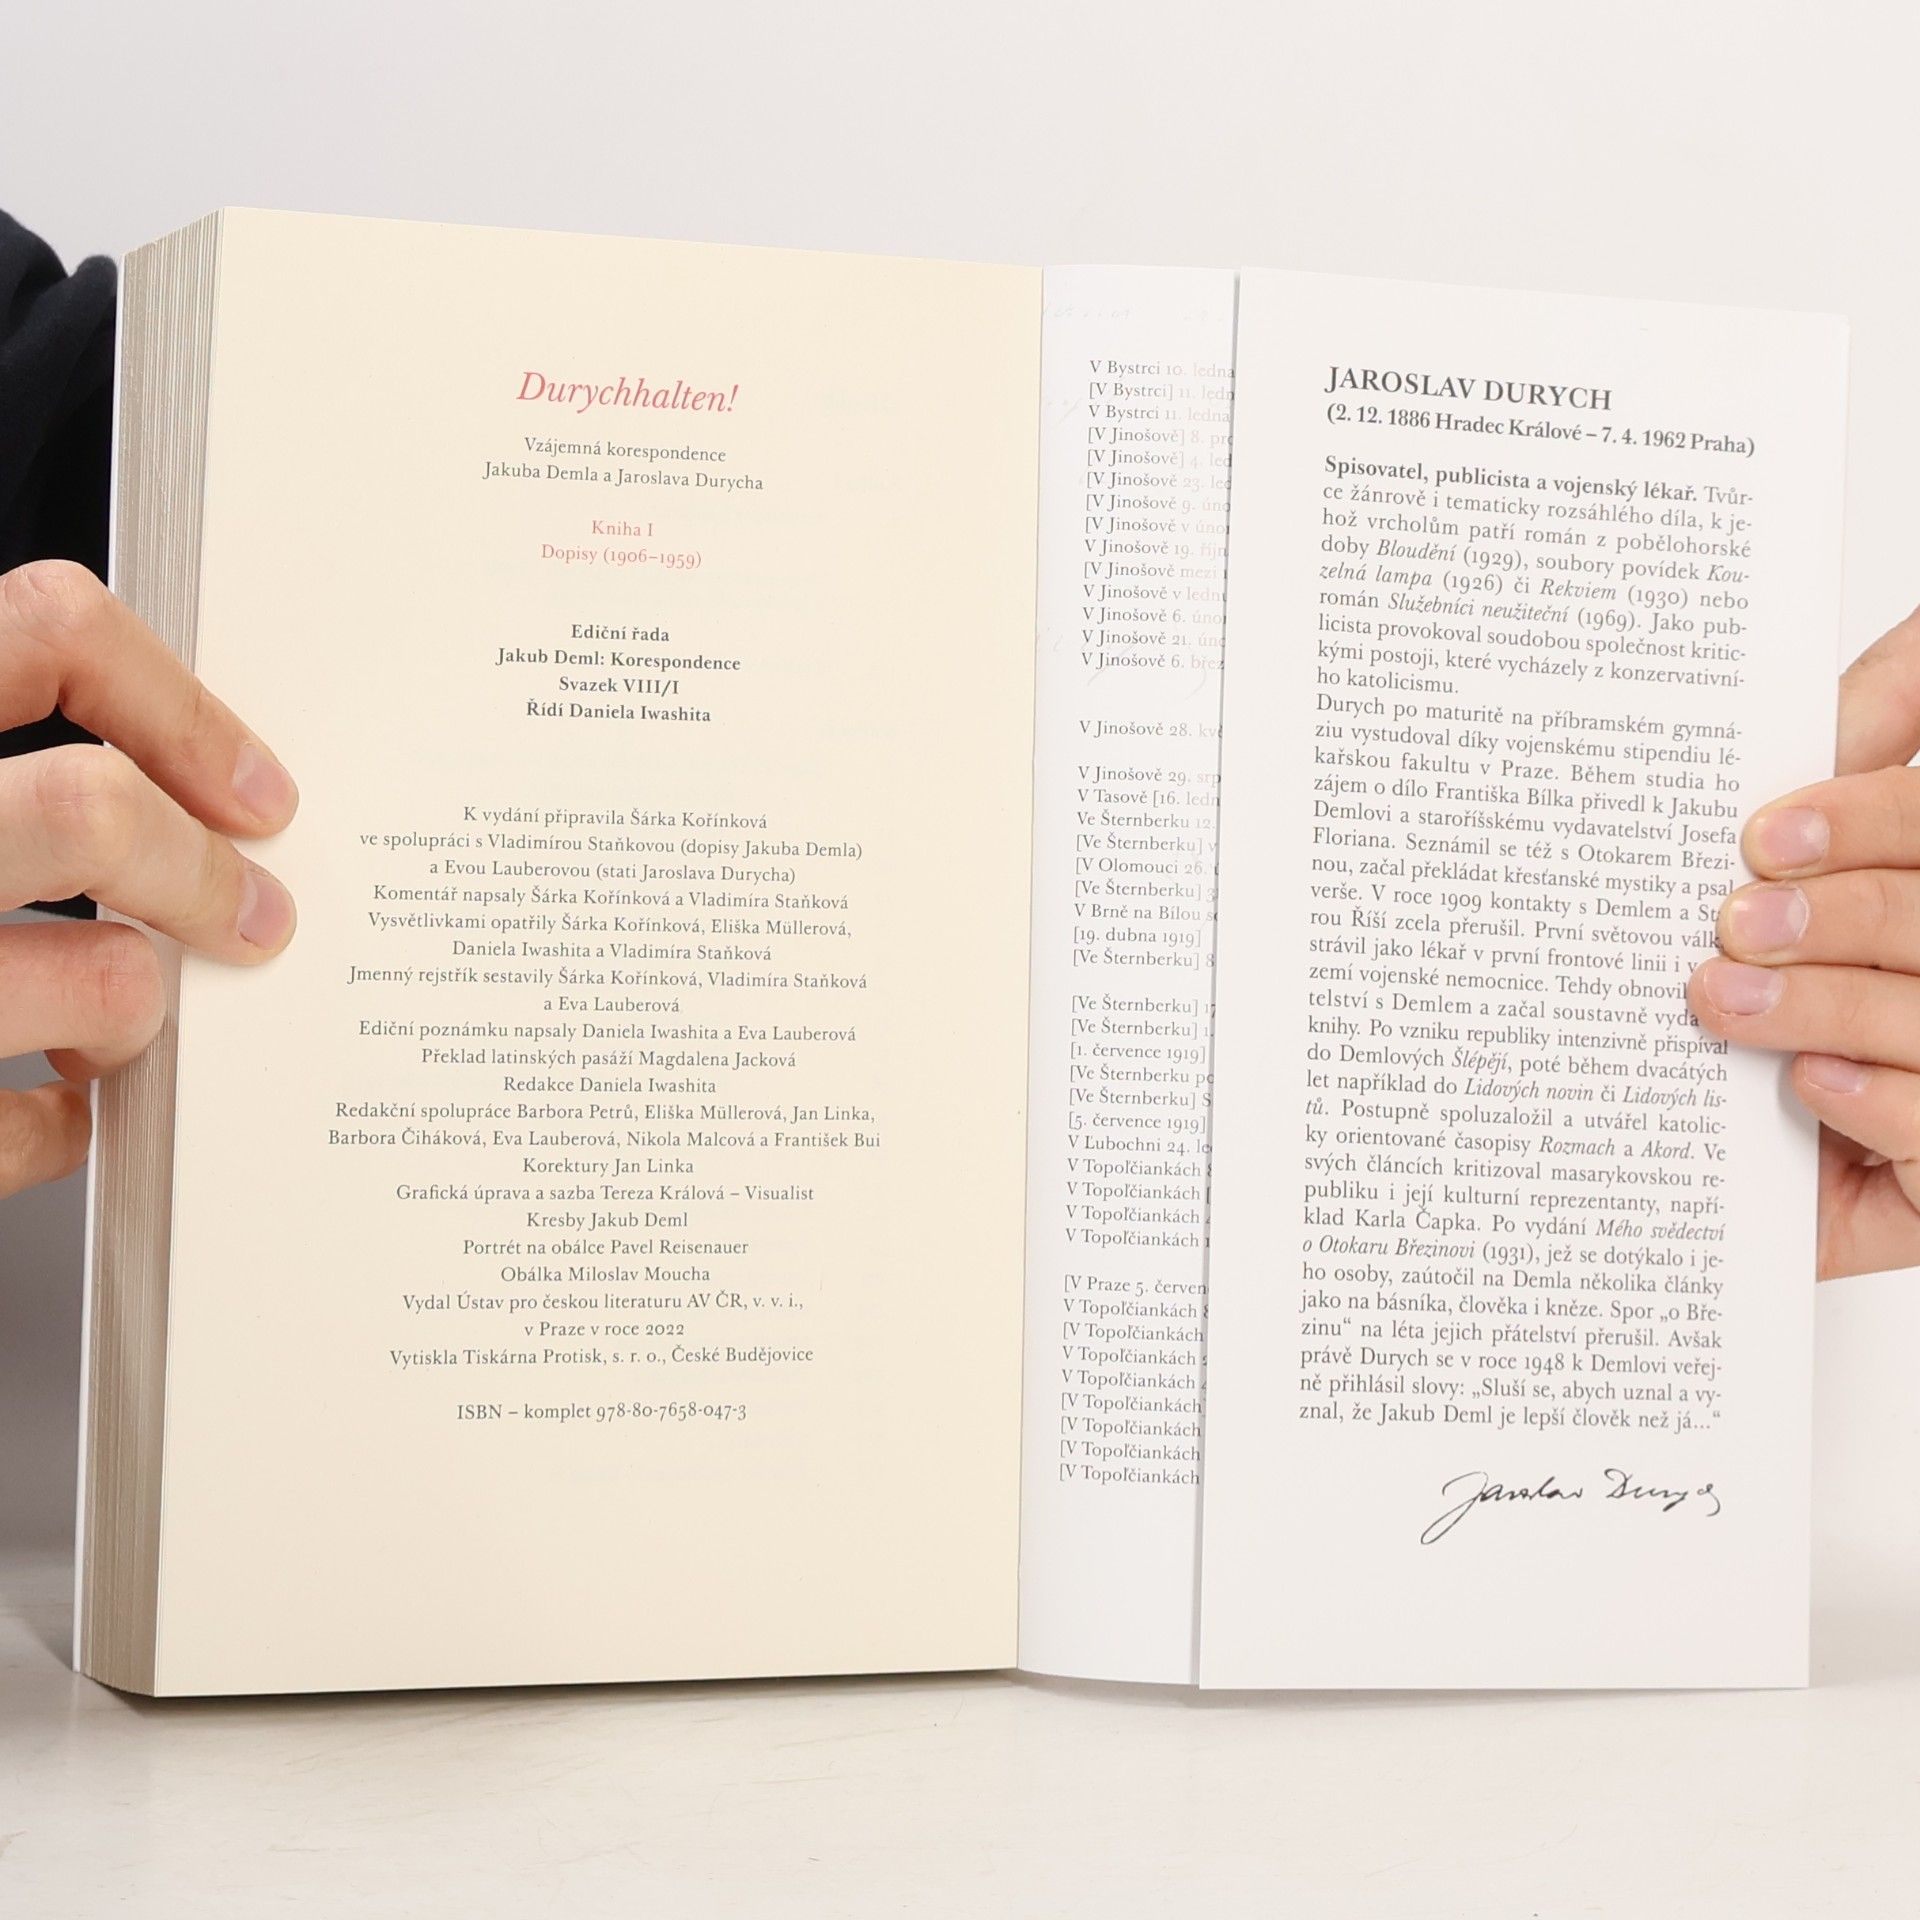 Durychhalten!
Vzájemná korespondence
Jakuba Demla a Jaroslava Durycha
Kniha I
Dopisy (1906–1959)
Ediční řada
Jakub Deml: Korespondence
Svazek VIII/I
Řídí Daniela Iwashita
K vydání připravila Šárka Kořínková
ve spolupráci s Vladimírou Staňkovou (dopisy Jakuba Demla)
a Evou Lauberovou (stati Jaroslava Durycha)
Komentář napsaly Šárka Kořínková a Vladimíra Staňková
Vysvětlivkami opatřily Šárka Kořínková, Eliška Müllerová,
Daniela Iwashita a Vladimíra Staňková
Jmenný rejstřík sestavily Šárka Kořínková, Vladimíra Staňková
a Eva Lauberová
Ediční poznámku napsaly Daniela Iwashita a Eva Lauberová
Překlad latinských pasáží Magdalena Jacková
Redakce Daniela Iwashita
Redakční spolupráce Barbora Petrů, Eliška Müllerová, Jan Linka,
Barbora Čiháková, Eva Lauberová, Nikola Malcová a František Bui
Korektury Jan Linka
Grafická úprava a sazba Tereza Králová – Visualist
Kresby Jakub Deml
Portrét na obálce Pavel Reisenauer
Obálka Miloslav Moucha
Vydal Ústav pro českou literaturu AV ČR, v. v. i.,
v Praze v roce 2022
Vytiskla Tiskárna Protisk, s. r. o., České Budějovice
ISBN – komplet 978-80-7658-047-3
V Bystrci 10. ledna
[V Bystrci] 11.
V Bystrci 11. ledna
[V Jinošově] 8.
[V Jinošově] 4.
[V Jinošově 23.
[V Jinošově 9.
[V Jinošově v
V Jinošově 19.
[V Jinošově mezi
V Jinošově v
V Jinošově 6.
V Jinošově 21.
V Jinošově 6.
V Jinošově 28.
V Jinošově 29.
V Tasově [16.
Ve Šternberku 12.
[Ve Šternberku] v
[V Olomouci 26.
[Ve Šternberku]
V Brně na Bílou
[19. dubna 1919]
[Ve Šternberku] 8
[Ve Šternberku]
[Ve Šternberku]
[1. července 1919]
[Ve Šternberku
[Ve Šternberku]
[5. července 1919]
V Ľubochni 24.
V Topoľčiankách
V Topoľčiankách
V Topoľčiankách
V Topoľčiankách
[V Praze 5.
V Topoľčiankách
[V Topoľčiankách
V Topoľčiankách
V Topoľčiankách
[V Topoľčiankách
[V Topoľčiankách
[V Topoľčiankách
[V Topoľčiankách
JAROSLAV DURYCH
(2. 12. 1886 Hradec Králové – 7. 4. 1962 Praha)
Spisovatel, publicista a vojenský lékař. Tvůr-
ce žánrově i tematicky rozsáhlého díla, k je-
hož vrcholům patří román z pobělohorské
doby Bloudění (1929), soubory povídek Kou-
zelná lampa (1926) či Rekviem (1930) nebo
román Služebníci neužiteční (1969). Jako pub-
licista provokoval soudobou společnost kritic-
kými postoji, které vycházely z konzervativní-
ho katolicismu.
Durych po maturitě na příbramském gymná-
ziu vystudoval díky vojenskému stipendiu lé-
kařskou fakultu v Praze. Během studia ho
zájem o dílo Františka Bílka přivedl k Jakubu
Demlovi a staroříšskému vydavatelství Josefa
Floriana. Seznámil se též s Otokarem Březi-
nou, začal překládat křesťanské mystiky a psal
verše. V roce 1909 kontakty s Demlem a
rou Říší zcela přerušil. První světovou
strávil jako lékař v první frontové linii i
zemí vojenské nemocnice. Tehdy obnovil
telství s Demlem a začal soustavně
knihy. Po vzniku republiky intenzivně přispíval
do Demlových Šlépějí, poté během dvacátých
let například do Lidových novin či Lidových lis-
tů. Postupně spoluzaložil a utvářel katolic-
ky orientované časopisy Rozmach a Akord. Ve
svých článcích kritizoval masarykovskou re-
publiku i její kulturní reprezentanty, napří-
klad Karla Čapka. Po vydání Mého svědectví
o Otokaru Březinovi (1931), jež se dotýkalo i je-
ho osoby, zaútočil na Demla několika články
jako na básníka, člověka i kněze. Spor „o Bře-
zinu“ na léta jejich přátelství přerušil. Avšak
právě Durych se v roce 1948 k Demlovi veřej-
ně přihlásil slovy: „Sluší se, abych uznal a vy-
znal, že Jakub Deml je lepší člověk než já...“
Jaroslav Durych